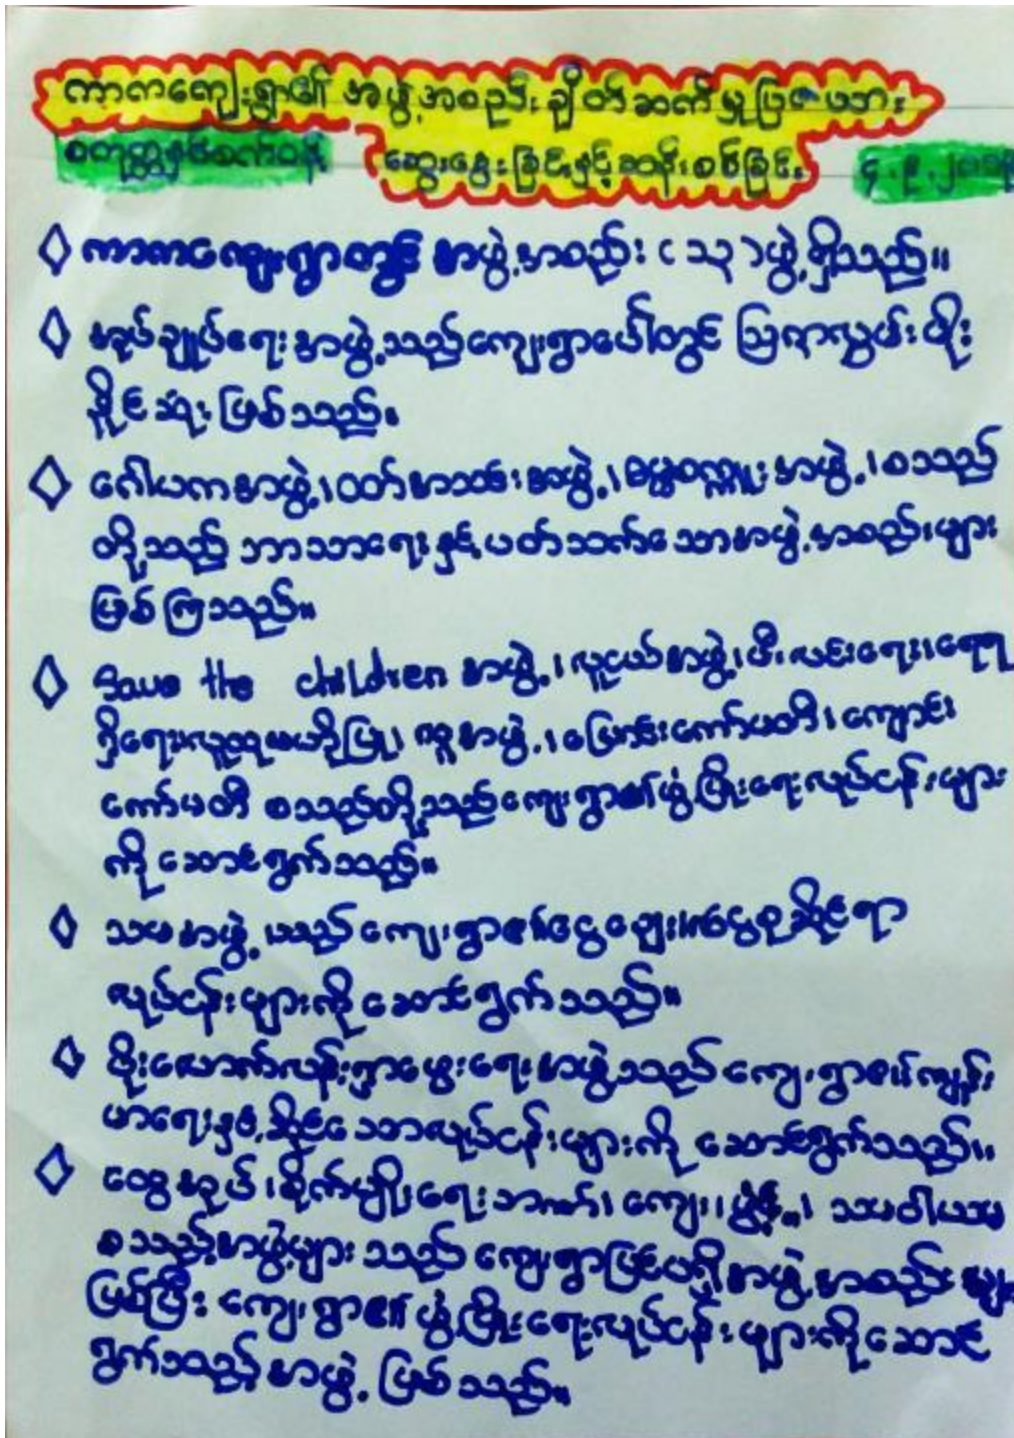 ကာကကျေးရွာ၏ အဖွဲ့အစည်း ချိတ်ဆက်မှုပြ ဇယား
စတုတ္ထနှစ်ဝက်ဝန်း ဆွေးနွေးခြင်းနှင့်ဆန်းစစ်ခြင်း
◊ ကာကကျေးရွာတွင် အဖွဲ့အစည်း (၁၃) ဖွဲ့ရှိသည်။
◊ အုပ်ချုပ်ရေးအဖွဲ့သည်ကျေးရွာပေါ်တွင် ဩဇာလွှမ်းမိုး
နိုင်ဆုံးဖြစ်သည်။
◊ ဂေါပကအဖွဲ့၊ ဝတ်အသင်းအဖွဲ့၊ ဓမ္မစကူးအဖွဲ့၊ စသည်
တို့သည် ဘာသာရေးနှင့်ပတ်သက်သောအဖွဲ့အစည်းများ
ဖြစ်ကြသည်။
◊ Save the children အဖွဲ့၊ လူငယ်အဖွဲ့၊ မီးလင်းရေး၊ ရေရ
ရှိရေး၊ လူထုဗဟိုပြု၊ ဂျူအဖွဲ့၊ မြောင်းကော်မတီ၊ ကျောင်း
ကော်မတီ စသည်တို့သည်ကျေးရွာ၏ဖွံ့ဖြိုးရေးလုပ်ငန်းများ
ကို ဆောင်ရွက်သည်။
◊ သမအဖွဲ့သည် ကျေးရွာ၏ငွေချေး၊ ငွေစုဆိုင်ရာ
လုပ်ငန်းများကို ဆောင်ရွက်သည်။
◊ ပိုးလောက်လန်းရှာဖွေရေးအဖွဲ့သည် ကျေးရွာ၏ကျန်း
မာရေးနှင့်ဆိုင်သောလုပ်ငန်းများကို ဆောင်ရွက်သည်။
◊ ထွေအုပ်၊ စိုက်ပျိုးရေးဘဏ်၊ ကျေး၊ ဖွံ့၊ သမဝါယမ
စသည့်အဖွဲ့များသည် ကျေးရွာပြင်ပရှိအဖွဲ့အစည်းများ
ဖြစ်ပြီး ကျေးရွာ၏ ဖွံ့ဖြိုးရေးလုပ်ငန်းများကို ဆောင်
ရွက်သည့်အဖွဲ့ ဖြစ်သည်။